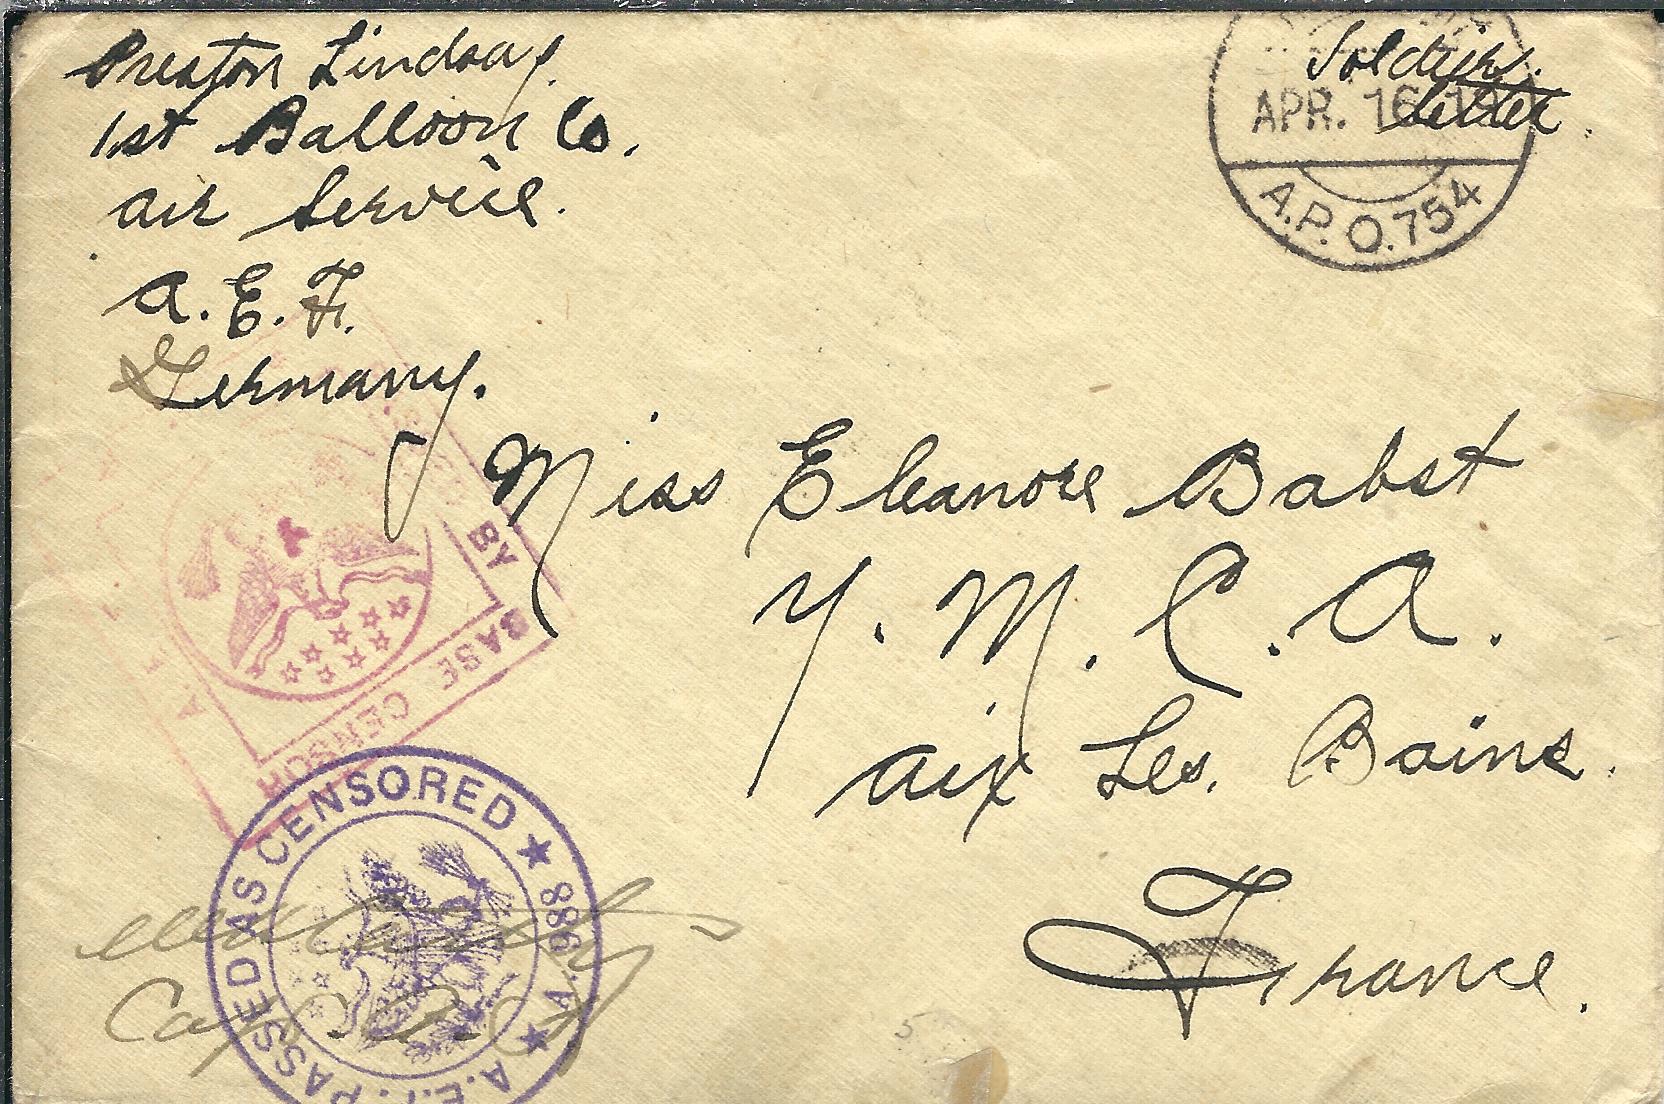 Preston Lindsay.
1st Balloon Co.
Air Service.
A.E.F.
Germany.
Soldier's
letter.
APR. 16 19
A.P.O. 754
Miss Eleanore Babst
Y.M.C.A.
Aix Les. Bains.
France.
BY BASE CENSOR
A.E.F. PASSED AS CENSORED ★ A.988 ★
Capt